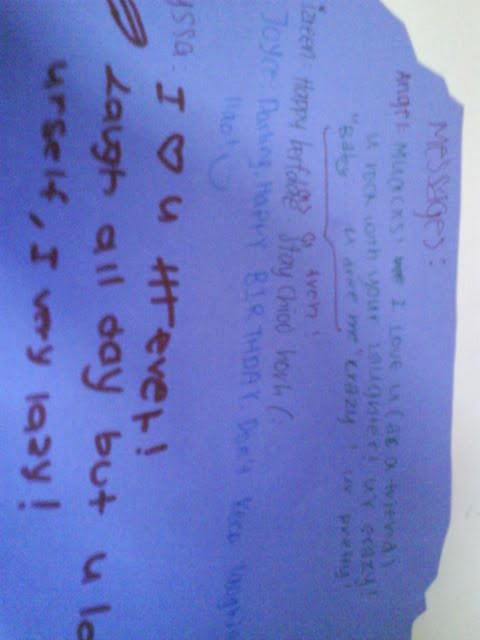 Messages:
Angel: Muacks! I love u (as a friend)
u rock with your laughter! ur crazy!
"baby u drive me" crazy! ur pretty!
Happy birthday
Stay Chio worh (:
Joyce: Darling, HAPPY BIRTHDAY. Don't
yssa: I ♥ u 4ever!
Laugh all day but u lo
urself, I very lazy!